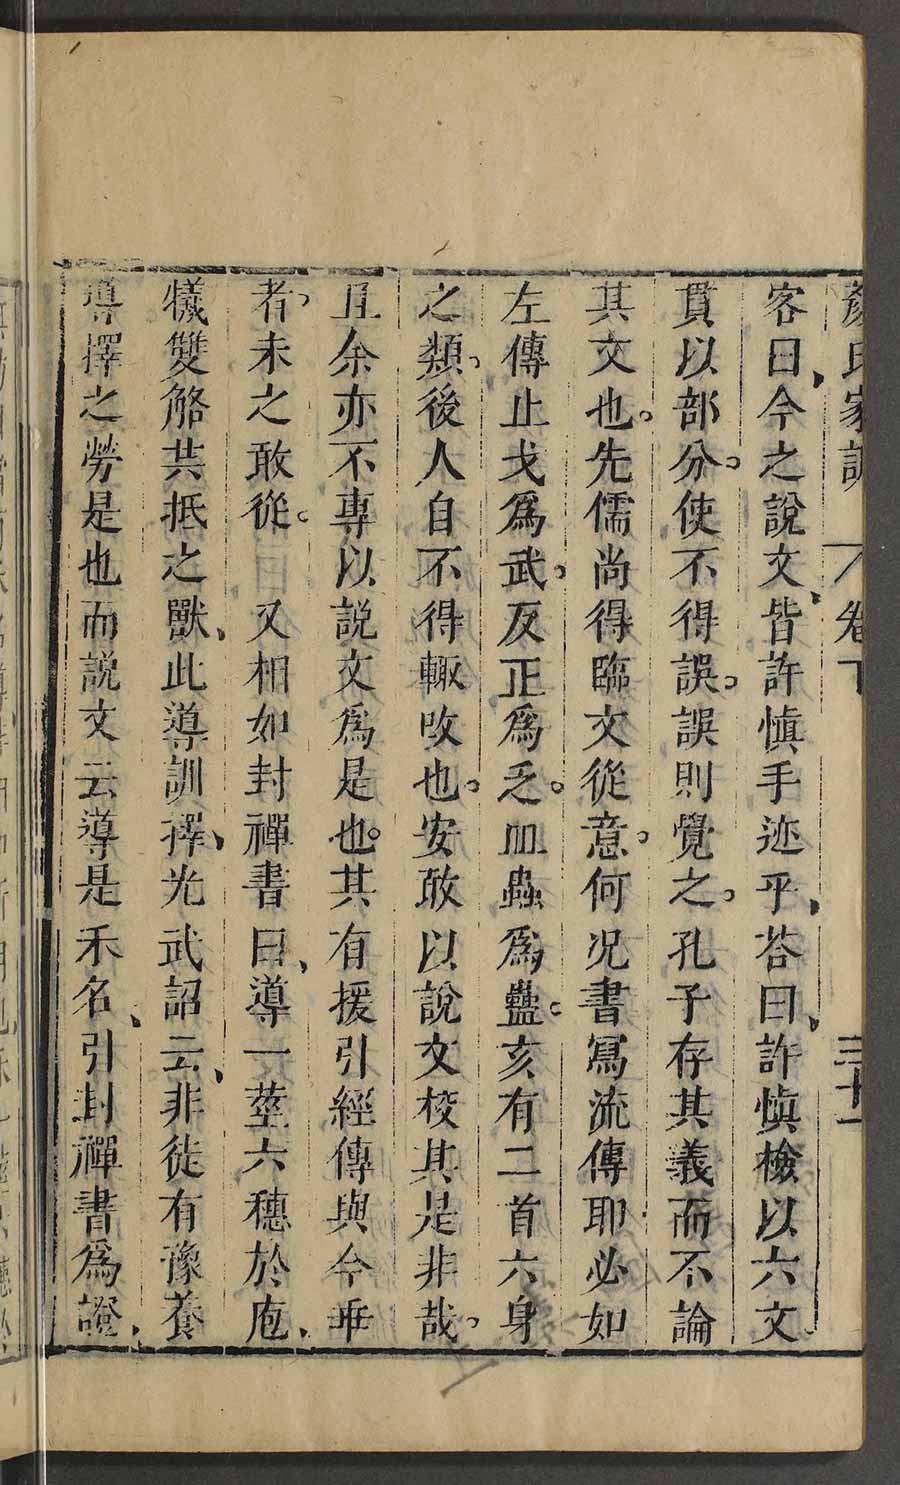 顏氏家訓 卷下 三十一
客曰、今之說文、皆許慎手迹乎、荅曰、許慎檢以六文
貫以部分。使不得誤。誤則覺之。孔子存其義而不論
其文也。先儒尚得臨文從意。何况書寫流傳耶必如
左傳止戈爲武。反正爲乏。皿蟲爲蠱。亥有二首六身
之類。後人自不得輙改也。安敢以說文校其是非哉。
且余亦不專以說文爲是也。其有援引經傳與今乖
者。未之敢從。又相如封禪書曰、導一莖六穗於庖、
犧雙觡共抵之獸、此導訓擇、光武詔云、非徒有豫養
導擇之勞是也而說文云導是禾名、引封禪書爲證、